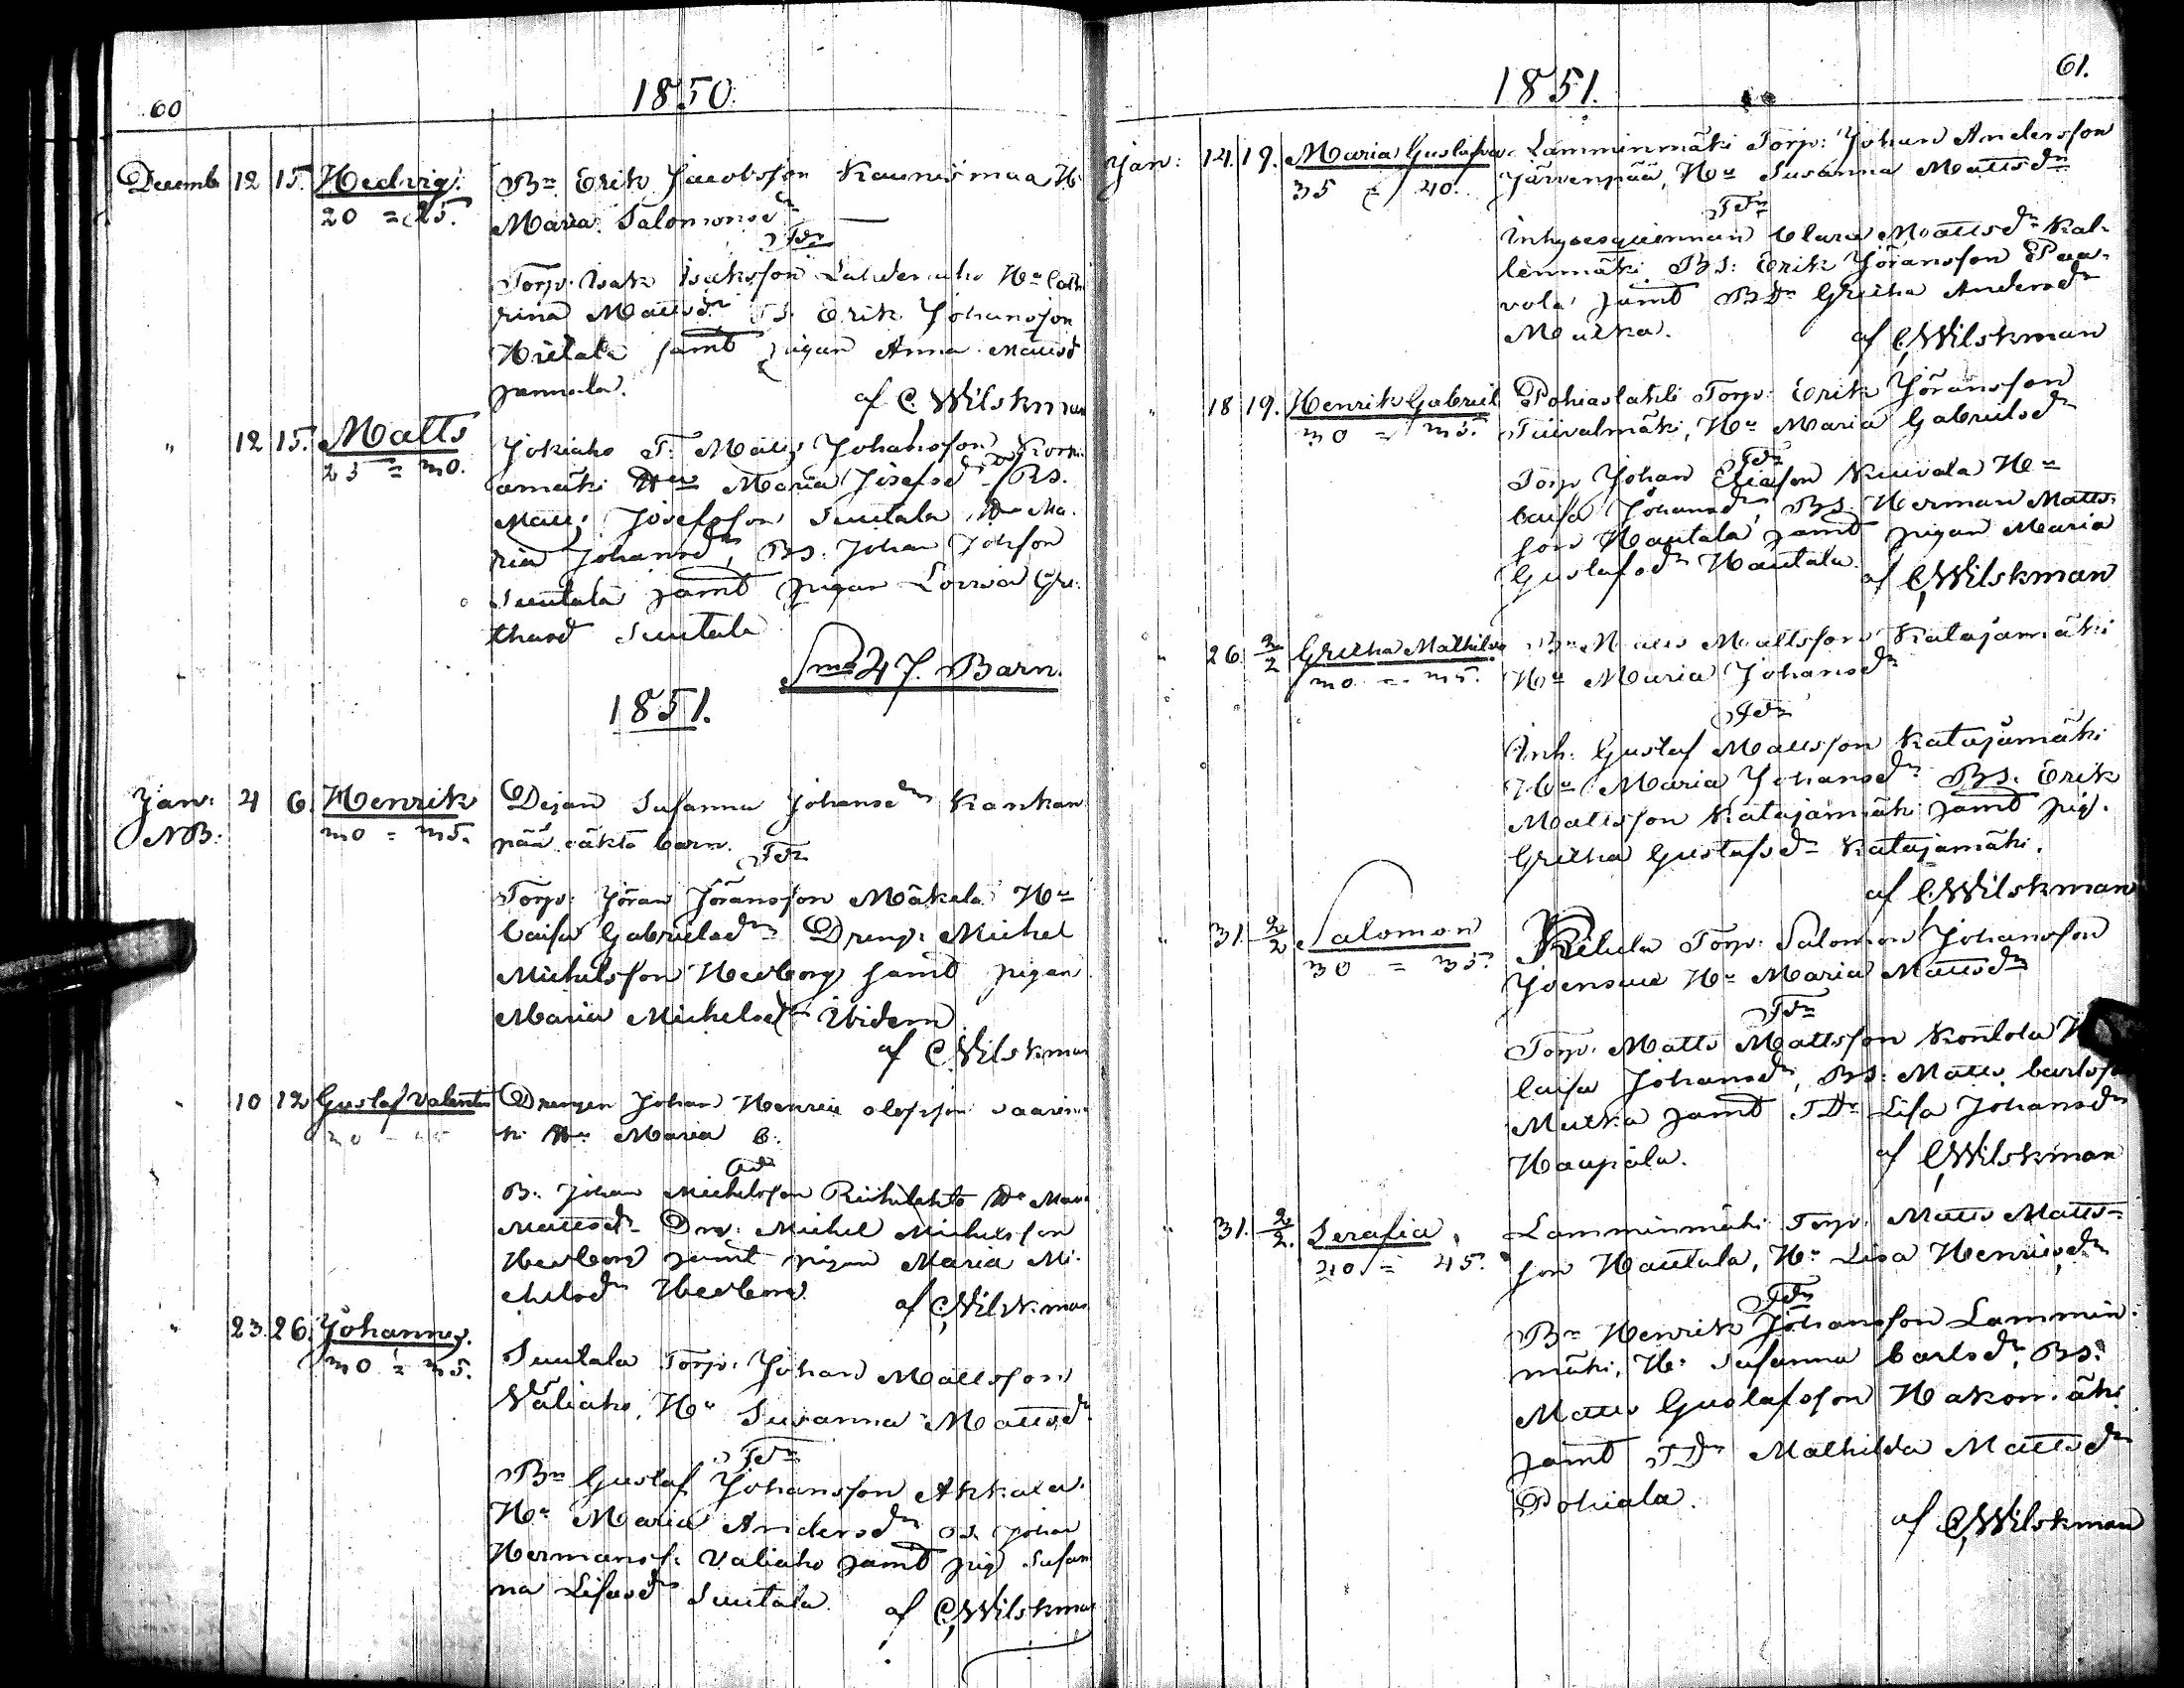 60
1850.
Decemb 12 15. Hedvig. Bn Erik Jacobsson Kaunismaa H
20 = 25. Maria Salomonsdr
Fdr
Torp. Isak Isaksson Lahdenaho Hu Cath
rina Mattsdr TS. Erik Johansson
Hietala samt pigan Anna Mattsd
Jannala.
af C. Wilskman
" 12 15. Matts Jokiaho T. Matts Johansson Korki
25 = 30. amäki Hu Maria Josefsdr
Fdr BS.
Matts Josefsson Suutala Hu Ma
ria Johansdr, BS. Johan Johsson
Suutala samt pigan Lovisa Gre
thasd Suutala
Sma 47. Barn.
1851.
Jan: 4 6. Henrik Dejan Susanna Johansdr Kankan
NB: 30 = 35. pää oäkta barn.
Fdr
Torp: Jöran Jöransson Mäkelä Hu
Caisa Gabrielsdr Dreng: Michel
Michelsson Hedborg samt pigan
Maria Michelsdr Ibidem
af C. Wilskman
" 10 12 Gustaf Valentin Drengen Johan Henric Olofsson Saarima
20 = 25 ki Hu Maria C.
Fdr
B. Johan Michelsson Riihilahto Hu Maria
Mattsdr Drg: Michel Michelsson
Hedborg samt pigan Maria Mi-
chelsdr Hedborg.
af C. Wilskman
" 23. 26. Johannes. Suutala Torp: Johan Mattsson
30 = 35. Väliaho, Hu Susanna Mattsdr
Fdr
Bn Gustaf Johansson Akkala.
Hu Maria Andersdr BS. Johan
Hermanss: Valiaho samt pig Susan
na Lisasdr Suutala.
af C. Wilskman
61.
1851.
Jan: 14. 19. Maria Gustafva Lamminmäki Torp: Johan Andersson
35 = 40. Järvenpää, Hu Susanna Mattsdr
Fdr
Inhysesquinnan Clara Mattsdr Kal-
lenmäki BS: Erik Jöransson Paa-
vola samt BDr Gretha Andersdr
Mutka.
af C. Wilskman
" 18 19. Henrik Gabriel Pohiaslahti Torp: Erik Jöransson
30 = 35. Tuivalmäki, Hu Maria Gabrielsdr
Fdr
Torp Johan Eliasson Kuivala Hu
Caisa Johansdr, BS. Herman Matts-
son Hautala samt pigan Maria
Gustafsdr Hautala.
af C. Wilskman
" 26. 2/2 Gretha Mathilda Bn Matts Mattsson Katajamäki
30 = 35. Hu Maria Johansdr
Fdr
Inh: Gustaf Mattsson Katajamäki
Hu Maria Johansdr BS. Erik
Mattsson Katajamäki samt pig.
Gretha Gustafsdr Katajamäki.
af C. Wilskman
" 31. 2/2 Salomon Kihula Torp: Salomon Johansson
30 = 35. Joensuu Hu Maria Mattsdr
Fdr
Torp: Matts Mattsson Kontola H
Caisa Johansdr, BS: Matts Carlsso
Mutka samt TDr Lisa Johansdr
Haupala.
af C. Wilskman
" 31. 2/2. Serafia Lamminmäki Torp: Matts Matts-
40 = 45. son Hautala, Hu Lisa Henricsdr
Fdr
Bn Henrik Johansson Lammin-
mäki, Hu Susanna Carlsdr, BS.
Matts Gustafsson Hakomäki
samt TDr Mathilda Mattsdr
Pohiala.
af C. Wilskman